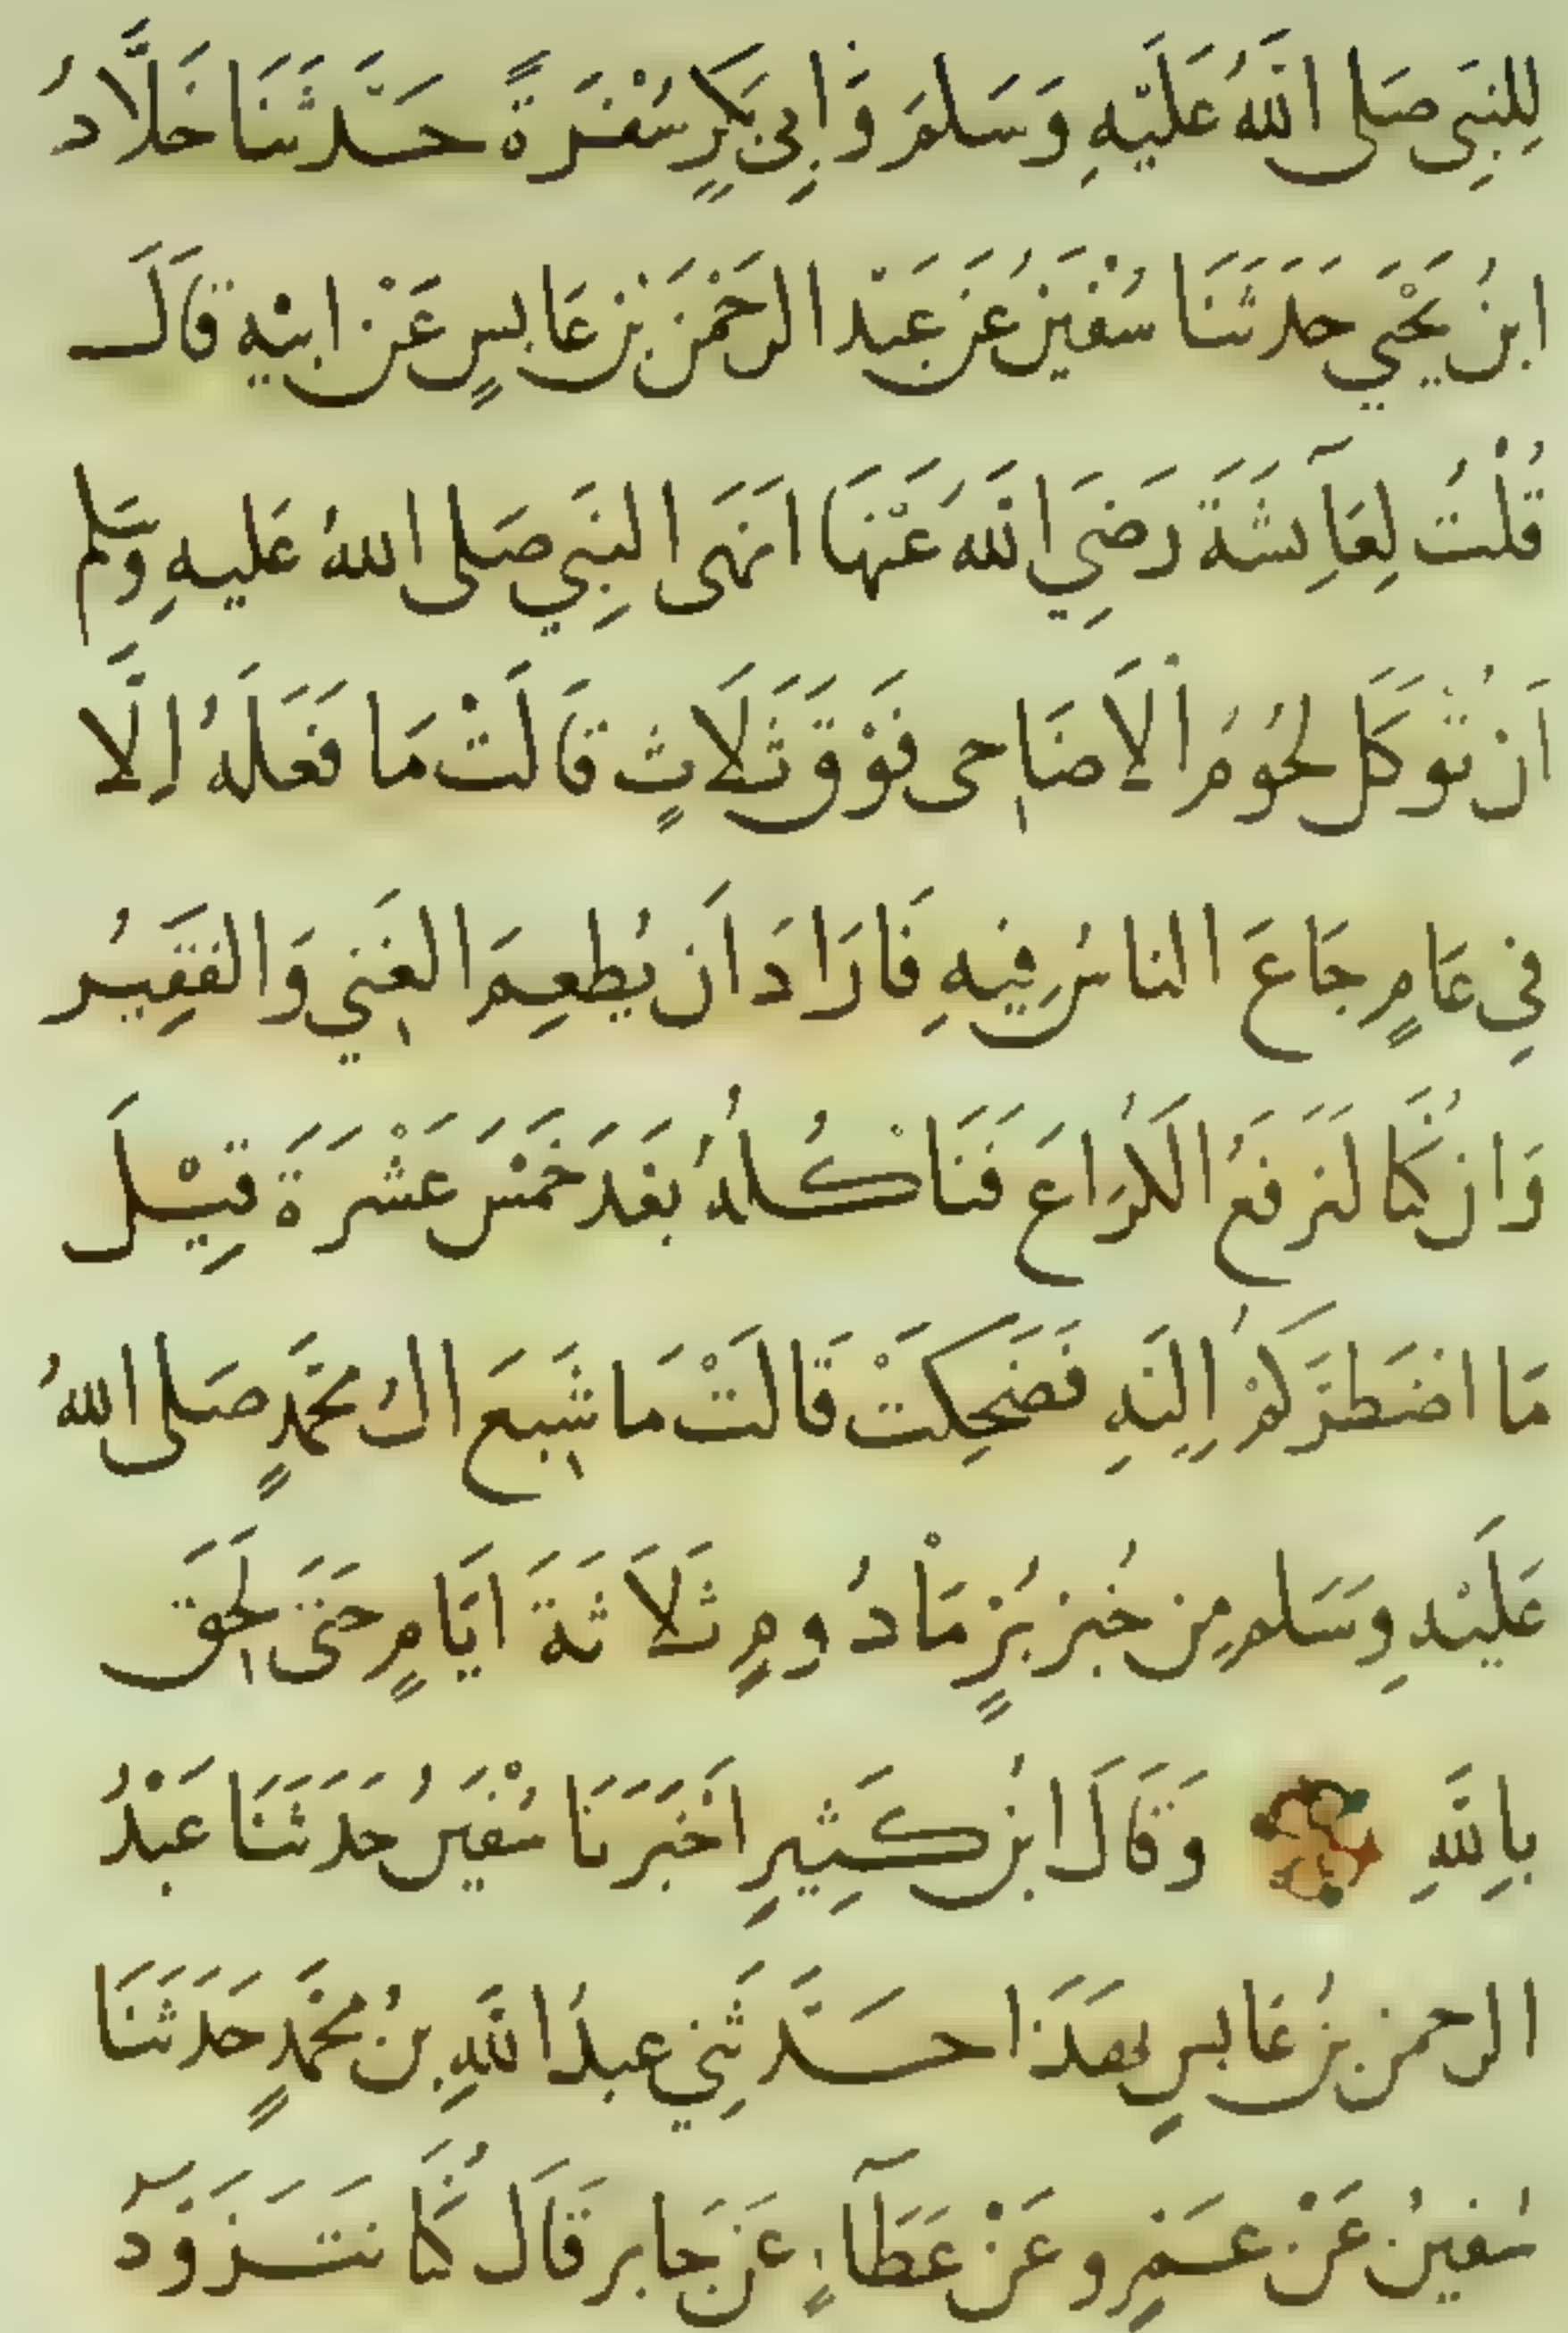 لِلنبِيّ صَلى اللهُ عَلَيْهِ وَسَلمَ وَأبِى بَكرٍ سُفْرَةً حَدَّثَنَا خَلَّادُ
ابنُ يَحْيَي حَدَثَنَا سُفْيَنُ عَن عَبْد الرَحْمَن بن عَابسٍ عَنْ ابيْهِ قَالَ
قُلْتُ لِعَآئِشَةَ رَضِيَ اللهُ عَنْهَا انَهَى النبِي صَلى اللهُ عَليهِ وَسَلم
اَنْ تُوكَلَ لحُومُ الْاَضَاحِى فَوْقَ ثَلَاثٍ قَالَتْ مَا فَعَلَهُ اِلَّا
فِي عَامٍ جَاعَ الناسُ فِيهِ فَارَادَ اَن يُطعِمَ الغَنِي وَالفَقِيْر
وَان كُنَّا لَنَرفَعُ الكُرَاعَ فَنَاْكُلُهُ بَعْدَ خَمْسَ عَشْرَةَ قِيْلَ
مَا اضْطَرَّكُمْ اِلَيْهِ فَضَحِكَتْ قَالَتْ مَا شَبِعَ ال محَمَّدٍ صَلى اللهُ
عَلَيْهِ وَسَلم مِن خُبْز بُرٍّ مَاْدُومٍ ثَلَاثَةَ ايَّامٍ حَتَّى لَحِقَ
بِاللَّهِ وَقَالَ ابنُ كَثِيرٍ اَخْبَرَنَا سُفْيَنُ حَدَثَنَا عَبْدُ
الرحمن بنُ عَابسٍ بهَذَا حَدَّثَنِي عبدُ اللَّهِ بنُ محَمَّدٍ حَدَثَنَا
سُفينُ عَنْ عَمْرٍو عَنْ عَطَآءٍ عَن جَابر قَالَ كُنَّا نتَزَوَّدُ